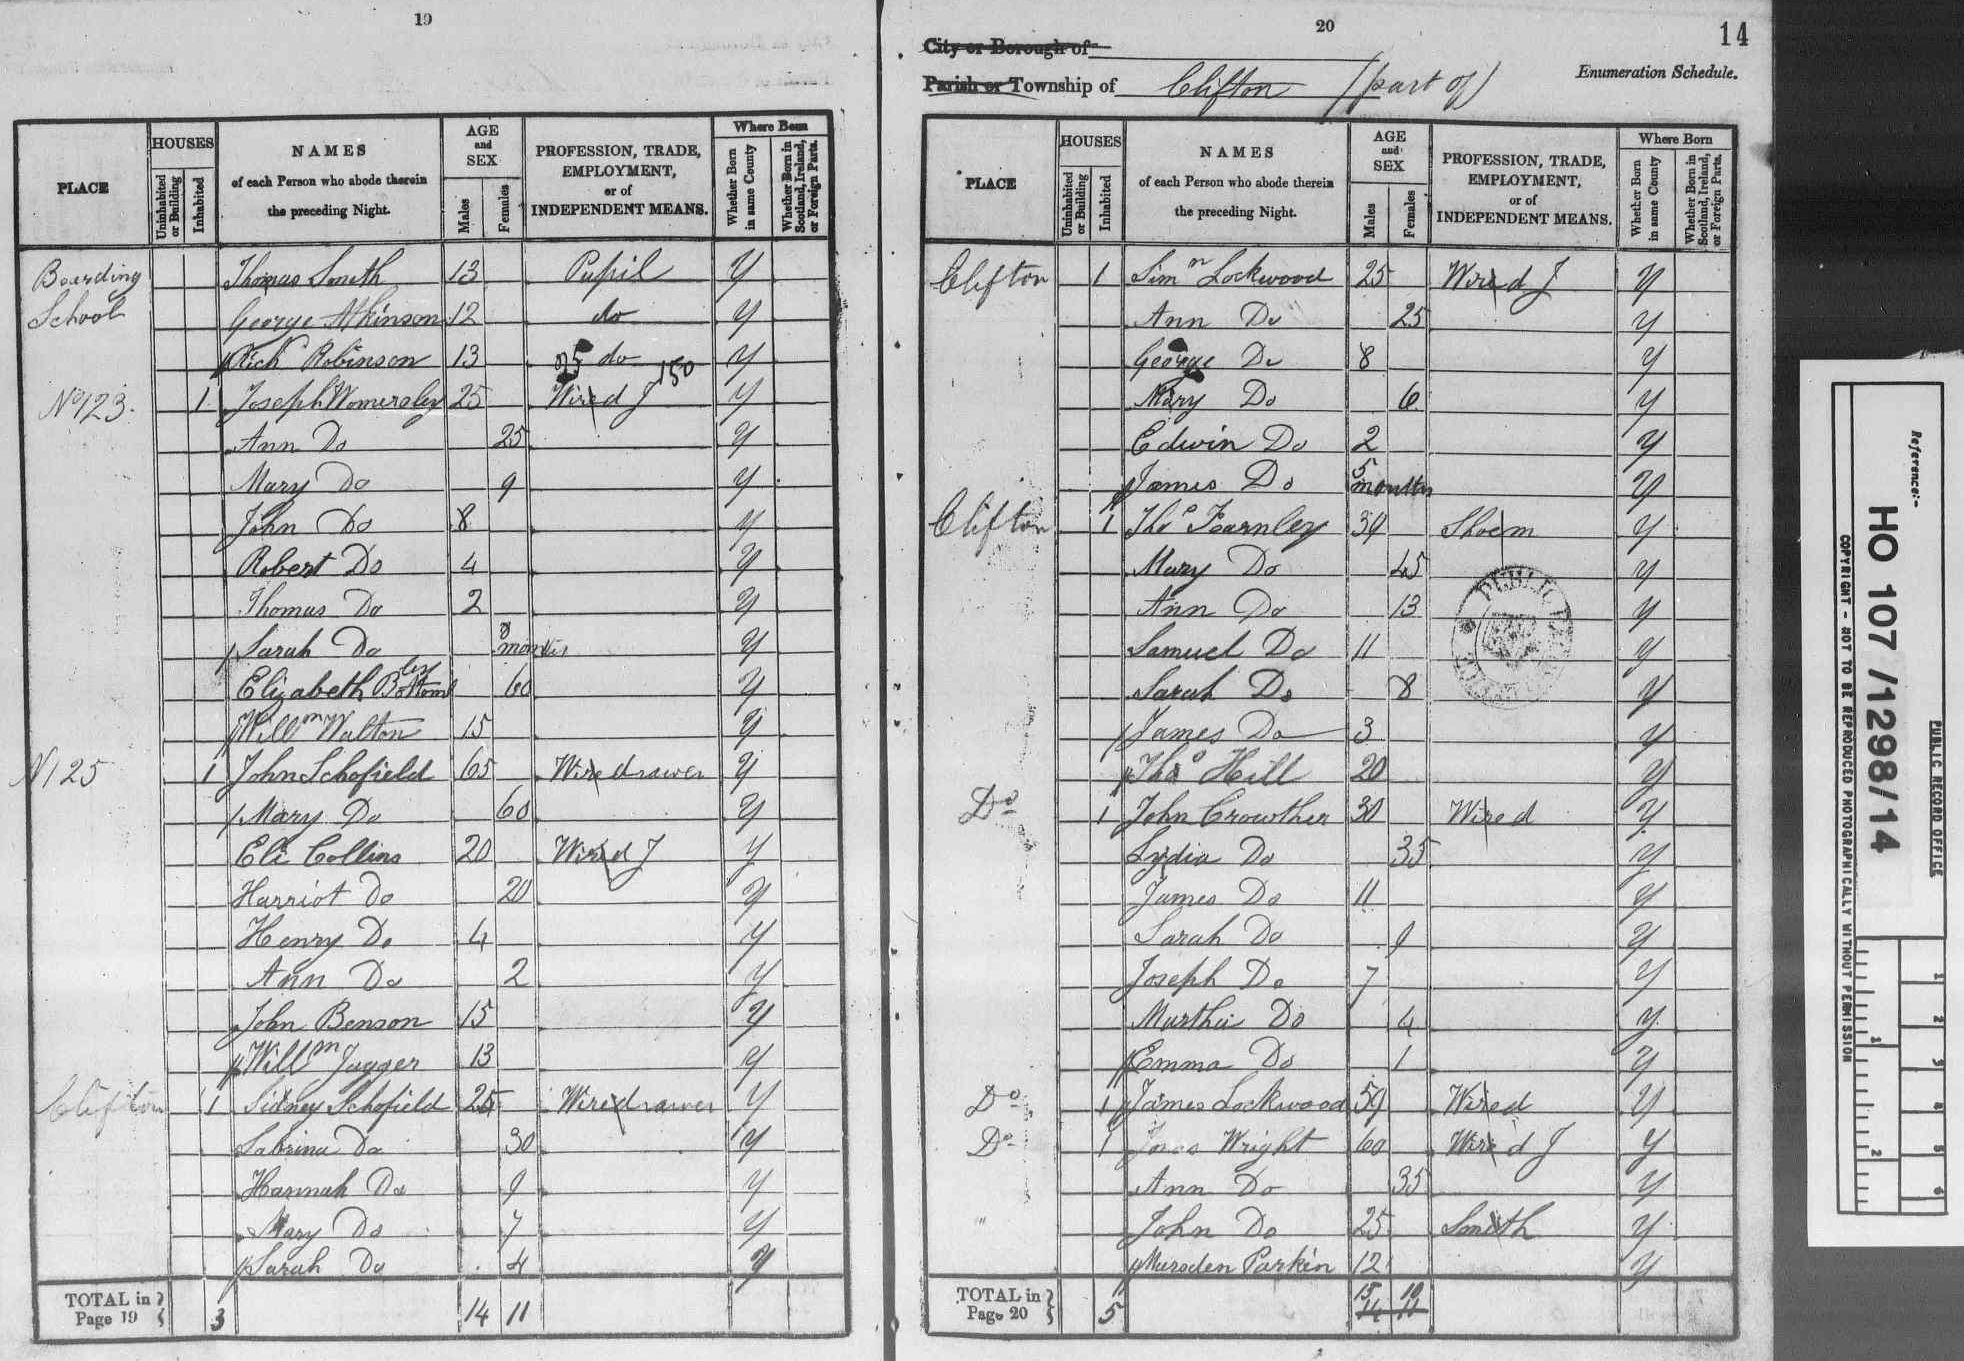 19
PLACE
HOUSES
Uninhabited or Building
Inhabited
NAMES
of each Person who abode therein
the preceding Night.
AGE
and
SEX
Males
Females
PROFESSION, TRADE,
EMPLOYMENT,
or of
INDEPENDENT MEANS.
Where Born
Whether Born in same County
Whether Born in Scotland, Ireland, or Foreign Parts.
Boarding Thomas Smith 13 Pupil Y
School George Atkinson 12 do Y
Rich Robinson 13 do Y
25 150
No 123. 1 Joseph Womersley 25 Wire d J Y
Ann Do 25 Y
Mary Do 9 Y
John Do 8 Y
Robert Do 4 Y
Thomas Do 2 Y
Sarah Do 8 months Y
Elizabeth Bottomley 60 Y
Willm Walton 15 Y
N 125 1 John Schofield 65 Wiredrawer Y
Mary Do 60 Y
Eli Collins 20 Wire d J Y
Harriot Do 20 Y
Henry Do 4 Y
Ann Do 2 Y
John Benson 15 Y
Willm Jagger 13 Y
Clifton 1 Sidney Schofield 25 Wiredrawer Y
Sabrina Do 30 Y
Hannah Do 9 Y
Mary Do 7 Y
Sarah Do 4 Y
TOTAL in Page 19 3 14 11
20
14
City or Borough of
Parish or Township of Clifton (part of)
Enumeration Schedule.
PLACE
HOUSES
Uninhabited or Building
Inhabited
NAMES
of each Person who abode therein
the preceding Night.
AGE
and
SEX
Males
Females
PROFESSION, TRADE,
EMPLOYMENT,
or of
INDEPENDENT MEANS.
Where Born
Whether Born in same County
Whether Born in Scotland, Ireland, or Foreign Parts.
Clifton 1 Simn Lockwood 25 Wire d J Y
Ann Do 25 Y
George Do 8 Y
Mary Do 6 Y
Edwin Do 2 Y
James Do 5 months Y
Clifton 1 Thos Fearnley 39 Shoem Y
Mary Do 45 Y
Ann Do 13 Y
Samuel Do 11 Y
Sarah Do 8 Y
James Do 3 Y
Thos Hill 20 Y
Do 1 John Crowther 30 Wire d Y
Lydia Do 35 Y
James Do 11 Y
Sarah Do 9 Y
Joseph Do 7 Y
Martha Do 4 Y
Emma Do 1 Y
Do 1 James Lockwood 59 Wire d Y
Do 1 Wright 60 Wire d J Y
Ann Do 35 Y
" John Do 25 Smith Y
Marsden Parkin 12 Y
TOTAL in Page 20 5 15 10
14 11
Reference:-
HO 107/1298/14
PUBLIC RECORD OFFICE
COPYRIGHT - NOT TO BE REPRODUCED PHOTOGRAPHICALLY WITHOUT PERMISSION
1 2
1 2 3 4 5 6